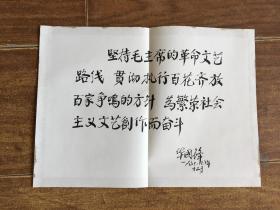 坚持毛主席的革命文艺
路线 贯彻执行百花齐放
百家争鸣的方针 为繁荣社会
主义文艺創作而奋斗
华国锋